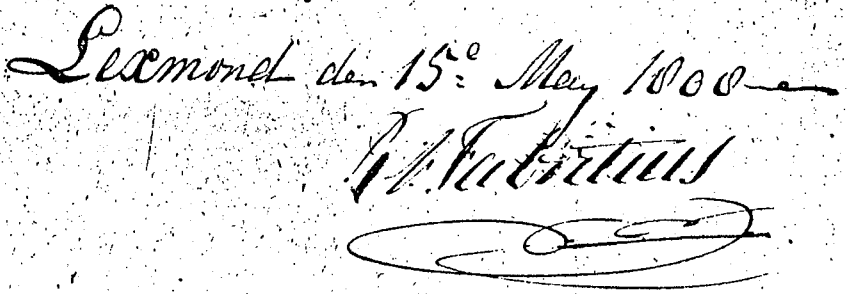 Lexmond den 15e May 1808
Fabritius